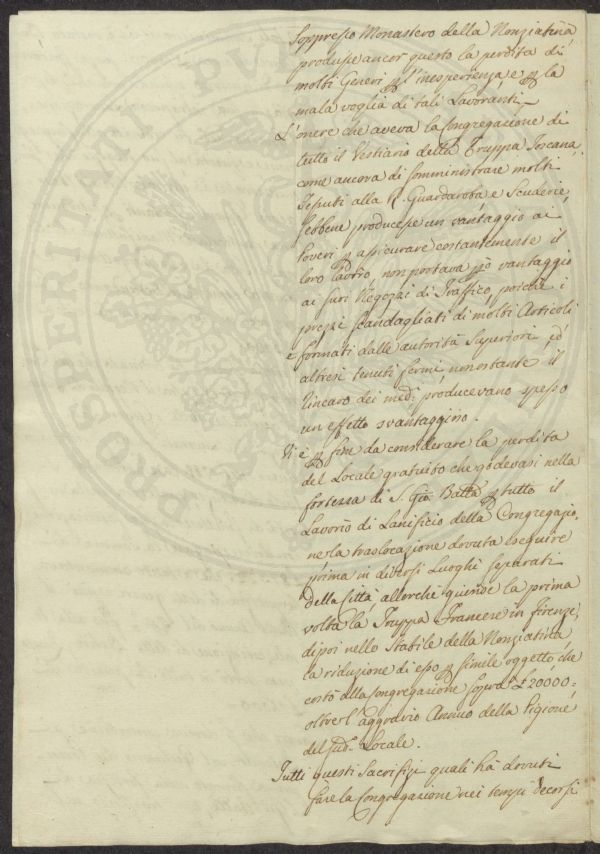 Soppresso Monastero della Nonziatina,
produsse ancor questo la perdita di
molti Generi p l'inesperienza e p la
mala voglia di tali Lavoranti.
L'onere che aveva la Congregazione di
tutto il Vestiario della Truppa Toscana,
come ancora di somministrare molti
Tessuti alla R. Guardaroba e Scuderie,
sebbene producesse un vantaggio ai
Poveri p assicurare costantemente il
loro lavoro, non portava però vantaggio
ai suoi Negozzi di Traffico, poichè i
prezzi scandagliati di molti Articoli
e formati dalle autorità Superiori ed
altresi tenuti fermi nonostante il
rincaro dei med.i producevano spesso
un effetto svantaggioso.
Vi è p fine da considerare la perdita
del Locale gratuito che godevasi nella
fortezza di S. Gio Batta p tutto il
Lavorio di Lanificio della Congregazio,
ne, la traslocazione dovuta eseguire
prima in diversi Luoghi separati
della Città allorchè giunse la prima
volta la Truppa Francese in firenze,
dipoi nello Stabile della Nonziatina
la riduzione di esso p simile oggetto, che
costò alla Congregazione sopra £ 20000 =
oltre l'aggravio Annuo della Pigione
del sud.o Locale.
Tutti questi Sacrifizi quali ha dovuti
fare la Congregazione nei tempi decorsi